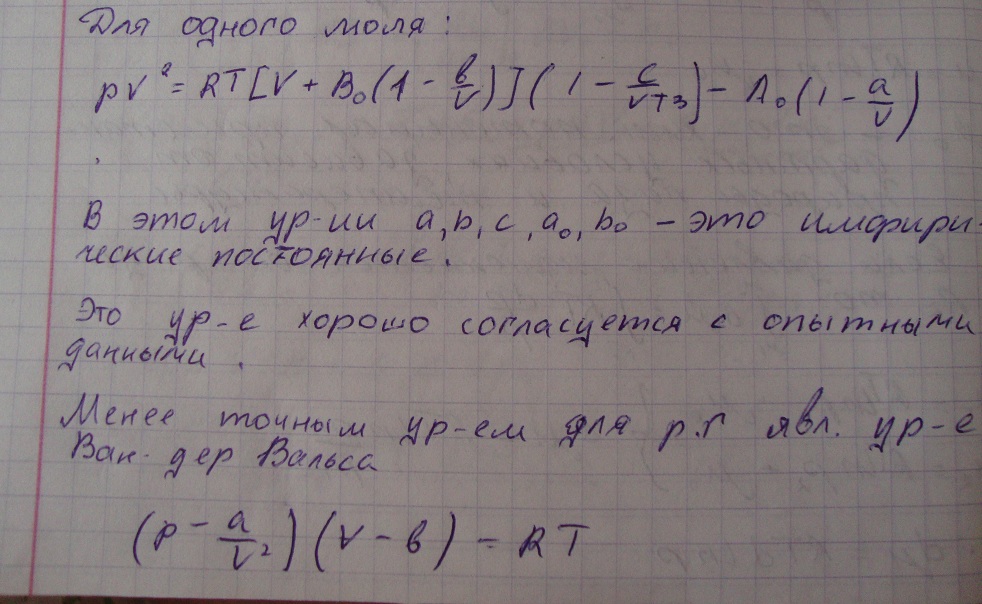 Для одного моля:
pV² = RT[V + B₀(1 - в/V)](1 - c/VT3] - A₀(1 - a/V)
В этом ур-ии a, b, c, a₀, b₀ - это имфири-
ческие постоянные.
Это ур-е хорошо согласуется с опытными
данными.
Менее точным ур-ем для р.г явл. ур-е
Ван-дер Вальса
(p - a/V²)(V - в) = RT